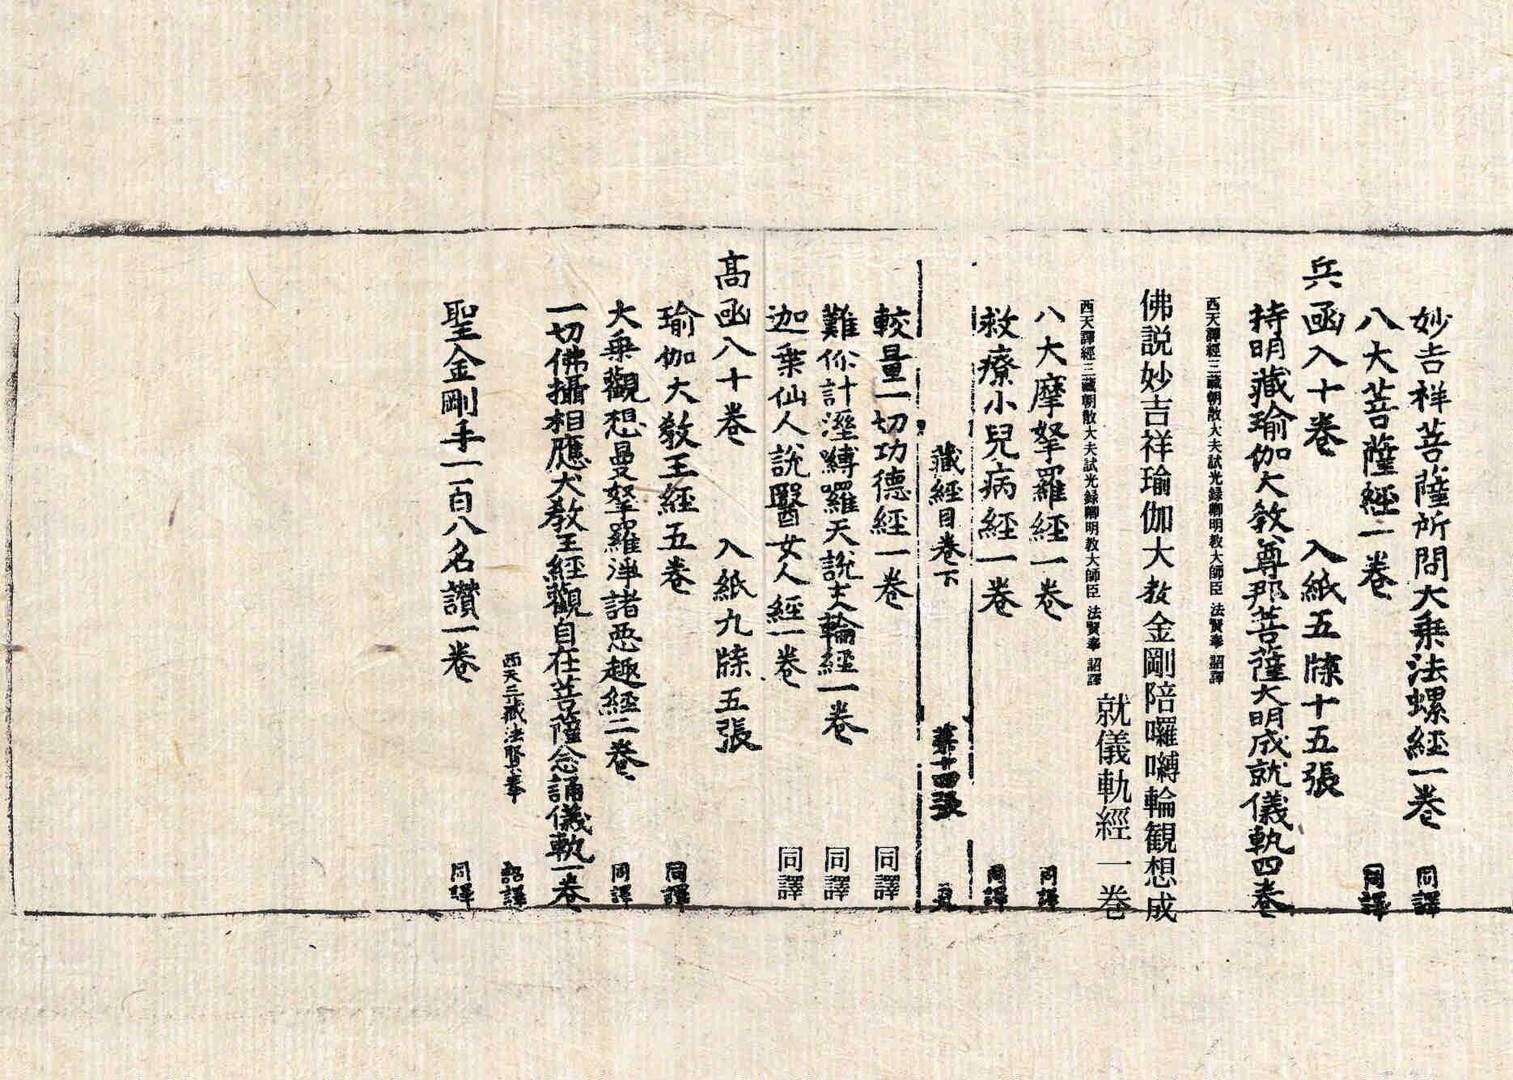 妙吉祥菩薩所問大乗法螺經一卷 同譯
八大菩薩經一卷 同譯
兵函入十卷 入紙五牒十五張
持明藏瑜伽大教尊那菩薩大明成就儀軌四卷
西天譯經三藏朝散大夫試光録卿明教大師臣 法賢奉 詔譯
佛説妙吉祥瑜伽大教金剛陪囉嚩輪観想成
就儀軌經一卷
西天譯經三藏朝散大夫試光録卿明教大師臣 法賢奉 詔譯
八大摩拏羅經一卷 同譯
救療小兒病經一卷 同譯
藏經目卷下 第十四張
較量一切功德經一卷 同譯
難你計溼嚩羅天說支輪經一卷 同譯
迦葉仙人說醫女人經一卷 同譯
高函八十卷 入紙九牒五張
瑜伽大教王經五卷 同譯
大乗觀想曼拏羅淨諸惡趣經二卷 同譯
一切佛攝相應大教王經觀自在菩薩念誦儀軌一卷
西天三藏法賢奉 詔譯
聖金剛手一百八名讃一卷 同譯